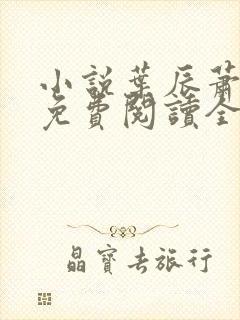 小說葉辰蕭
免費閱讀全
晶寶去旅行